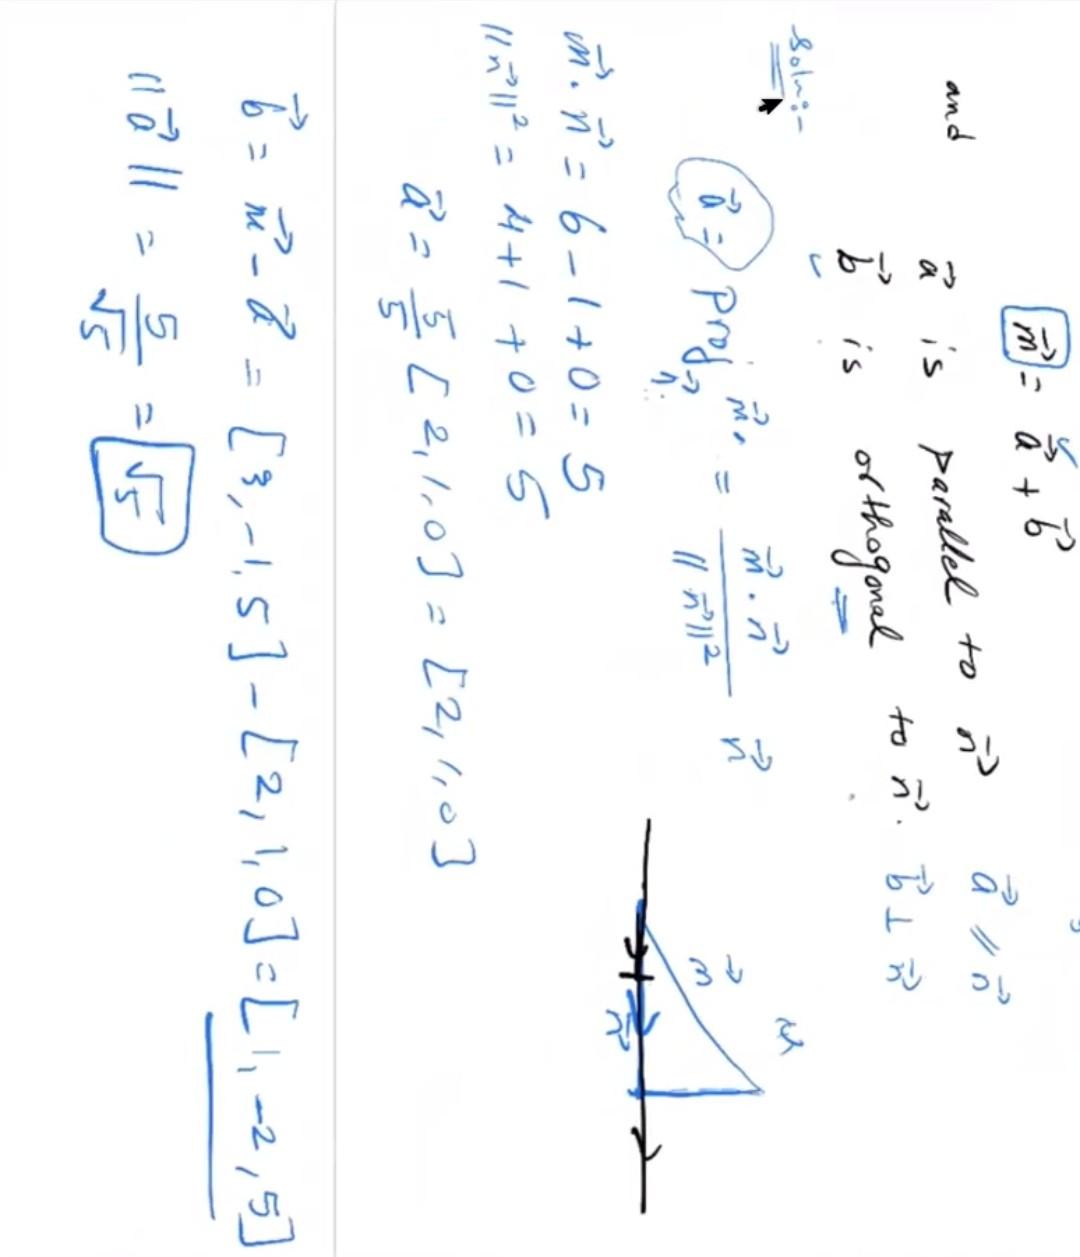 m⃗ = a⃗ + b⃗
and a⃗ is parallel to n⃗ a⃗ ∥ n⃗
b⃗ is orthogonal to n⃗. b⃗ ⊥ n⃗
Soln:-
a⃗ = Proj_n⃗ m⃗ = (m⃗ · n⃗ / ||n⃗||²) n⃗
m⃗
n⃗
m⃗ · n⃗ = 6 - 1 + 0 = 5
||n⃗||² = 4 + 1 + 0 = 5
a⃗ = 5/5 [2, 1, 0] = [2, 1, 0]
b⃗ = m⃗ - a⃗ = [3, -1, 5] - [2, 1, 0] = [1, -2, 5]
||a⃗|| = 5/√5 = √5